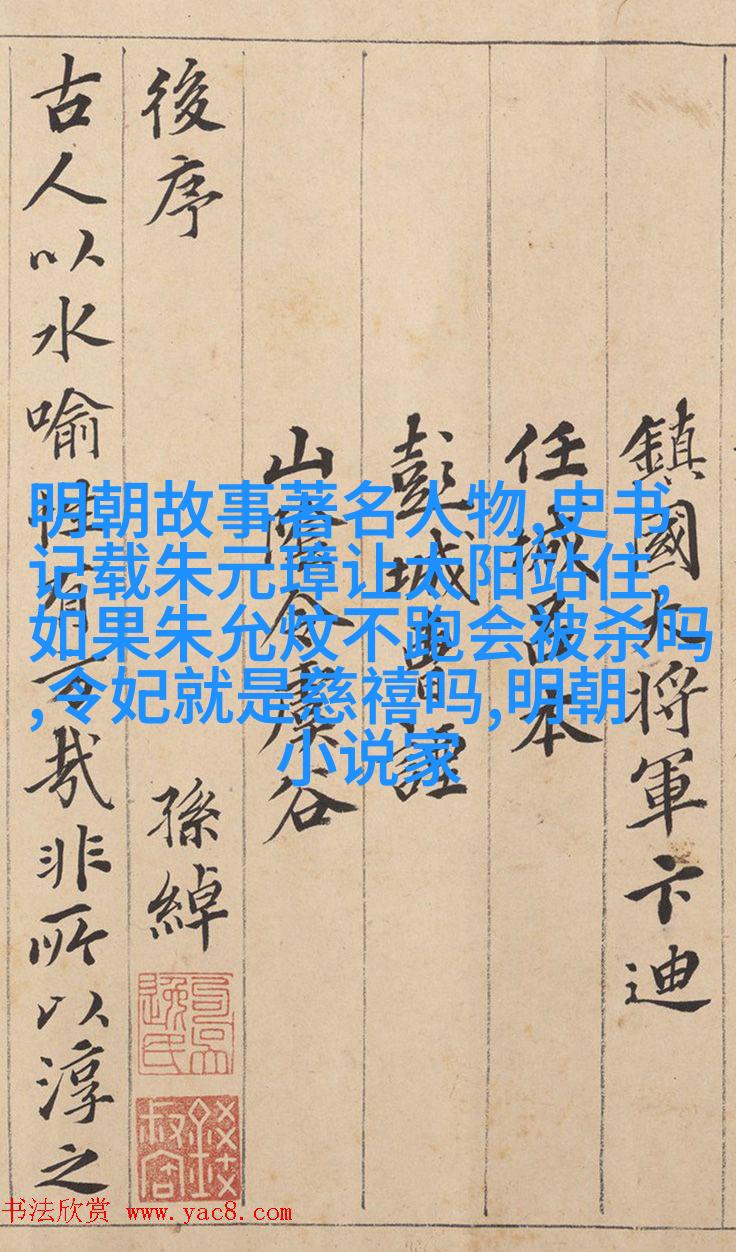 明朝故事著名人物,史书
记载朱元璋让太阳站住,
如果朱允炆不跑会被杀吗
,令妃就是慈禧吗,明朝
小说家
鎮國大將軍卞迪
任城呂本
彭城曹諲
山陰令虞谷
後序 孫綽
古人以水喻性有旨哉非所以淳之
书法欣赏 www.yac8.com